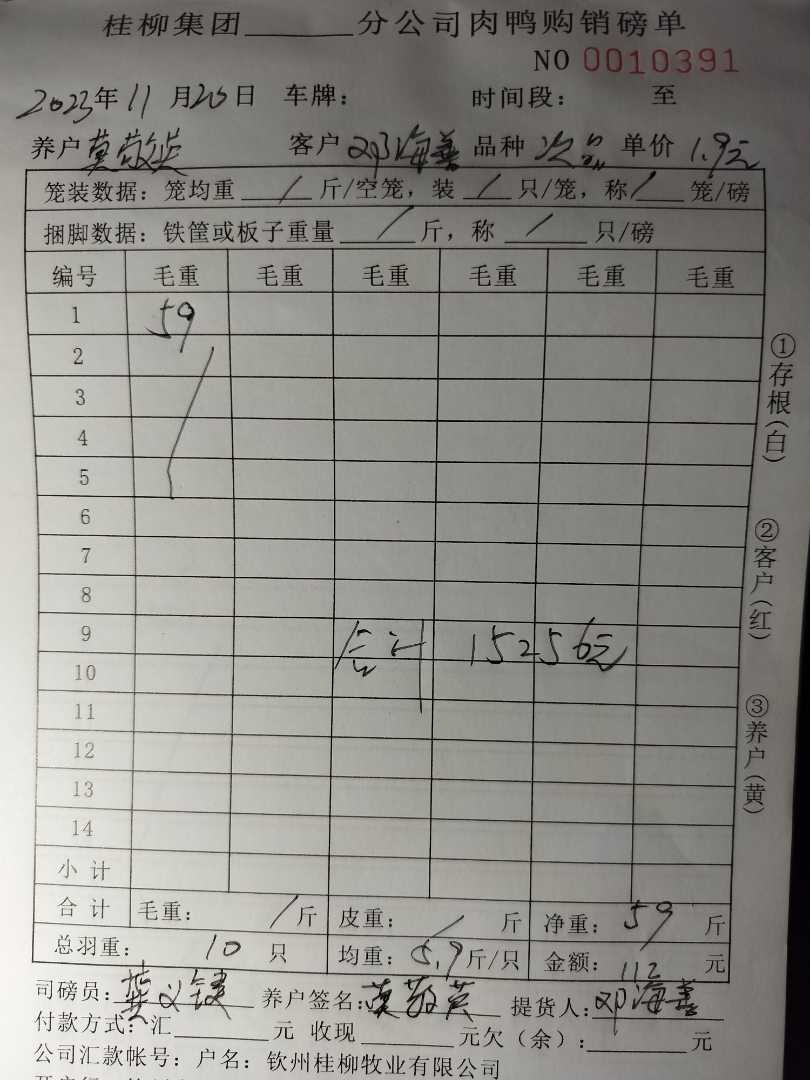 桂柳集团______分公司肉鸭购销磅单
NO 0010391
2023年11月20日 车牌: 时间段: 至
养户 莫敬英 客户 邓海善 品种 次品 单价 1.9元
笼装数据: 笼均重 / 斤/空笼, 装 / 只/笼, 称 / 笼/磅
捆脚数据: 铁筐或板子重量 / 斤, 称 / 只/磅
编号 毛重 毛重 毛重 毛重 毛重 毛重
1 59
2
3
4
5
6
7
8
9 合计 15256元
10
11
12
13
14
小计
合计 毛重: / 斤 皮重: / 斤 净重: 59 斤
总羽重: 10 只 均重: 5.9 斤/只 金额: 112 元
司磅员: 龚义 养户签名: 莫敬英 提货人: 邓海善
付款方式: 汇______元 收现______元欠(余): ______元
公司汇款帐号: 户名: 钦州桂柳牧业有限公司
①存根(白)
②客户(红)
③养户(黄)